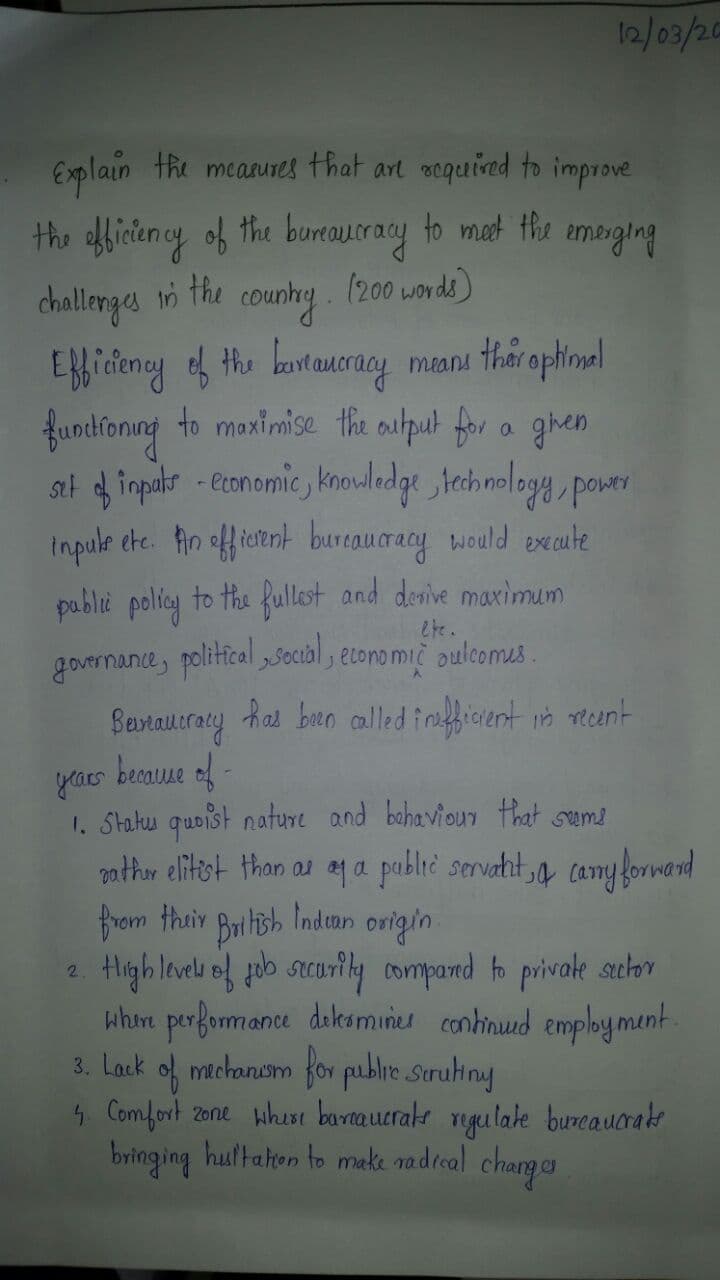 12/03/20
Explain the measures that are required to improve
the efficiency of the bureaucracy to meet the emerging
challenges in the country. (200 words)
Efficiency of the bureaucracy means their optimal
functioning to maximise the output for a given
set of inputs - economic, knowledge, technology, power
inputs etc. An efficient bureaucracy would execute
public policy to the fullest and derive maximum
etc.
governance, political, social, economic outcomes.
Bureaucracy has been called inefficient in recent
years because of -
1. Status quoist nature and behaviour that seems
rather elitist than as of a public servant, a carry forward
from their British Indian origin
2. High levels of job security compared to private sector
where performance determines continued employment.
3. Lack of mechanism for public scrutiny
4. Comfort zone where bureaucrats regulate bureaucrats
bringing hesitation to make radical changes